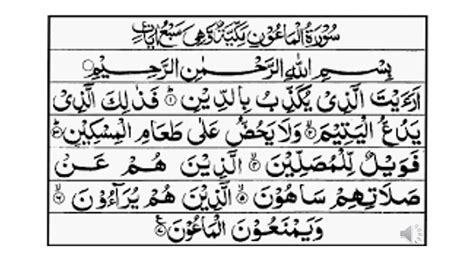 سُوْرَةُ الْمَاعُوْنِ مَكِّيَّةٌ وَّهِيَ سَبْعُ اٰيَاتٍ
بِسْمِ اللّٰهِ الرَّحْمٰنِ الرَّحِيْمِ
اَرَءَيْتَ الَّذِىْ يُكَذِّبُ بِالدِّيْنِ ۝۱ فَذٰلِكَ الَّذِىْ
يَدُعُّ الْيَتِيْمَ ۝۲ وَلَا يَحُضُّ عَلٰى طَعَامِ الْمِسْكِيْنِ ۝۳
فَوَيْلٌ لِّلْمُصَلِّيْنَ ۝۴ الَّذِيْنَ هُمْ عَنْ
صَلَاتِهِمْ سَاهُوْنَ ۝۵ الَّذِيْنَ هُمْ يُرَآءُوْنَ ۝۶
وَيَمْنَعُوْنَ الْمَاعُوْنَ ۝۷